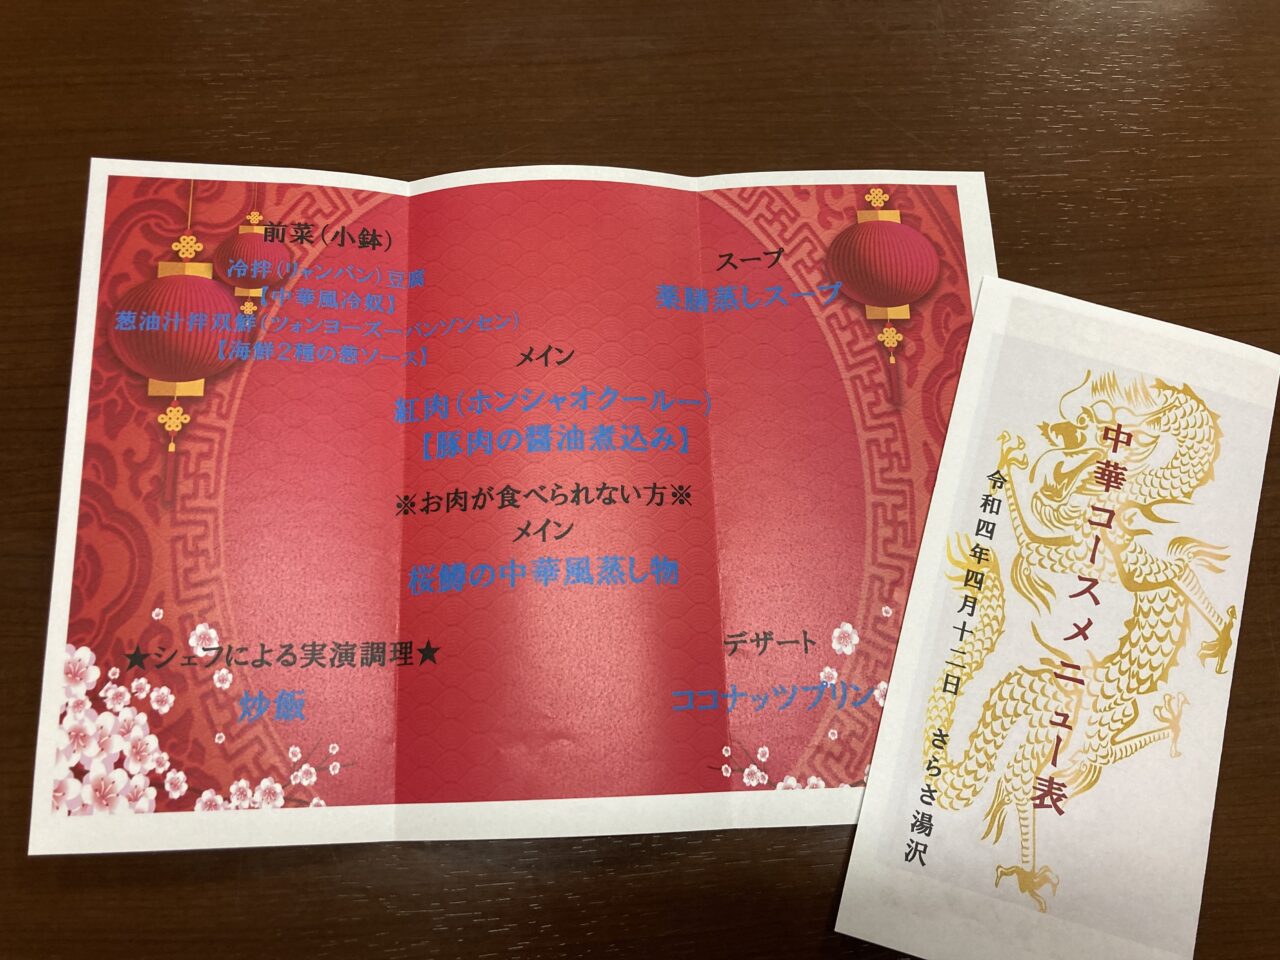 前菜（小鉢）
冷拌（リャンバン）豆腐
【中華風冷奴】
葱油汁拌双鮮（ツォンヨーズーバンゾンセン）
【海鮮２種の葱ソース】
スープ
薬膳蒸しスープ
メイン
紅肉（ホンシャオクールー）
【豚肉の醤油煮込み】
※お肉が食べられない方※
メイン
桜鱒の中華風蒸し物
★シェフによる実演調理★
炒飯
デザート
ココナッツプリン
中華コースメニュー表
令和四年四月十二日　さらさ湯沢